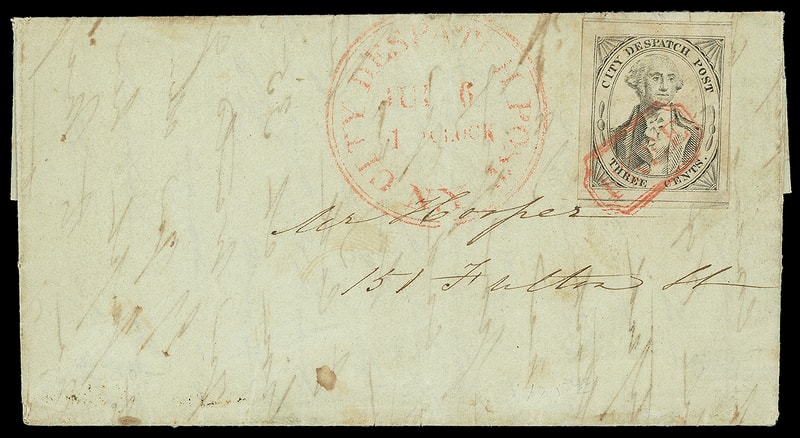 CITY DESPATCH POST
JUL 6
1 O'CLOCK
N.Y.
CITY DESPATCH POST
THREE CENTS.
Mr Hooper
151 Fulton St